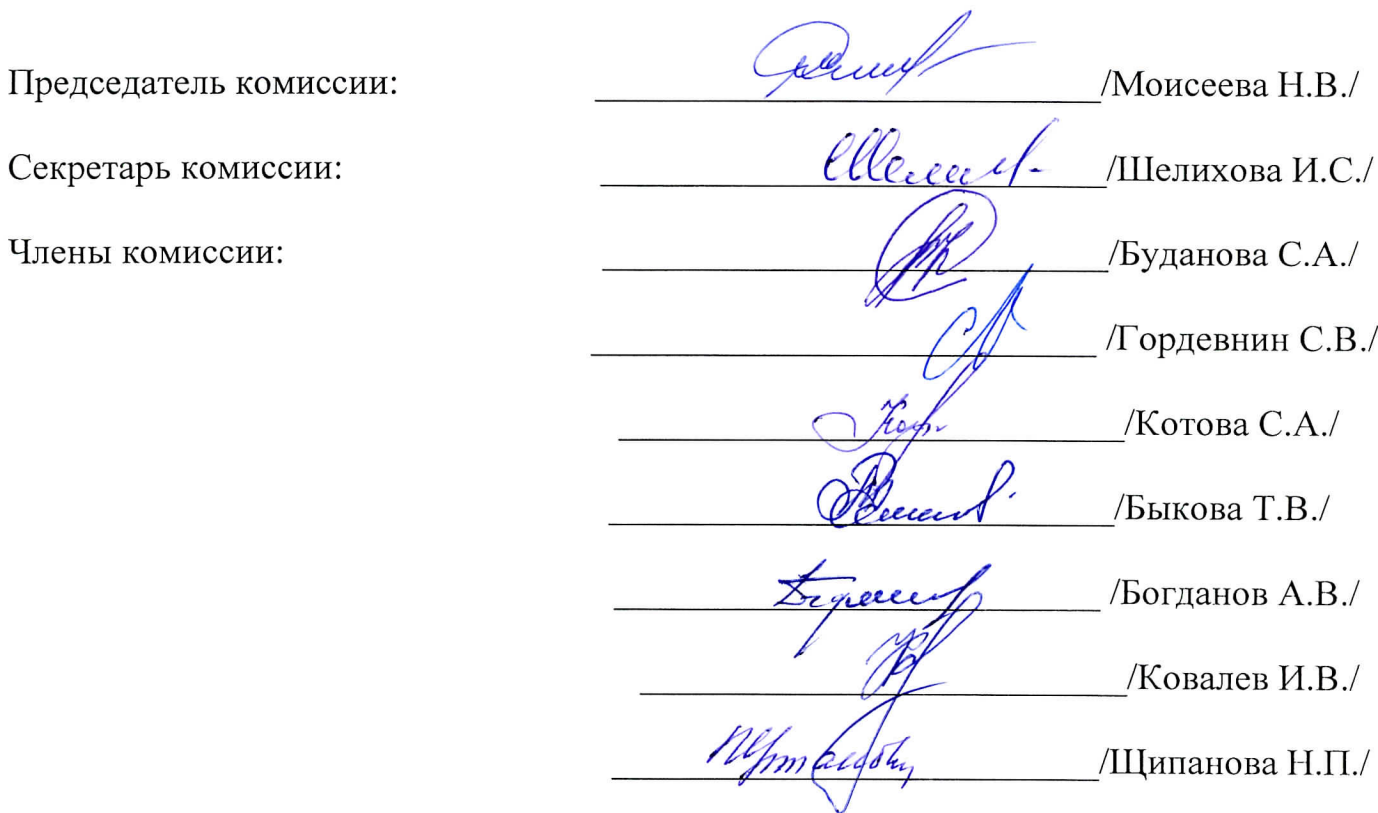 Председатель комиссии: /Моисеева Н.В./
Секретарь комиссии: /Шелихова И.С./
Члены комиссии: /Буданова С.А./
/Гордевнин С.В./
/Котова С.А./
/Быкова Т.В./
/Богданов А.В./
/Ковалев И.В./
/Щипанова Н.П./